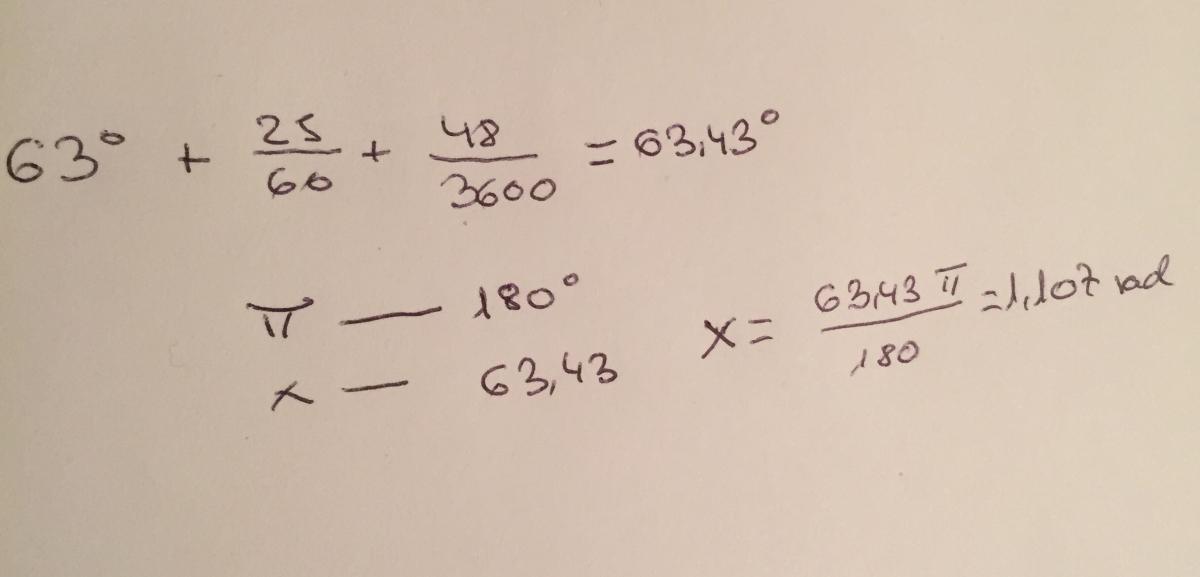 63° + 25/60 + 48/3600 = 63,43°
π — 180°
x — 63,43
x = 63,43 π/180 = 1,107 rad